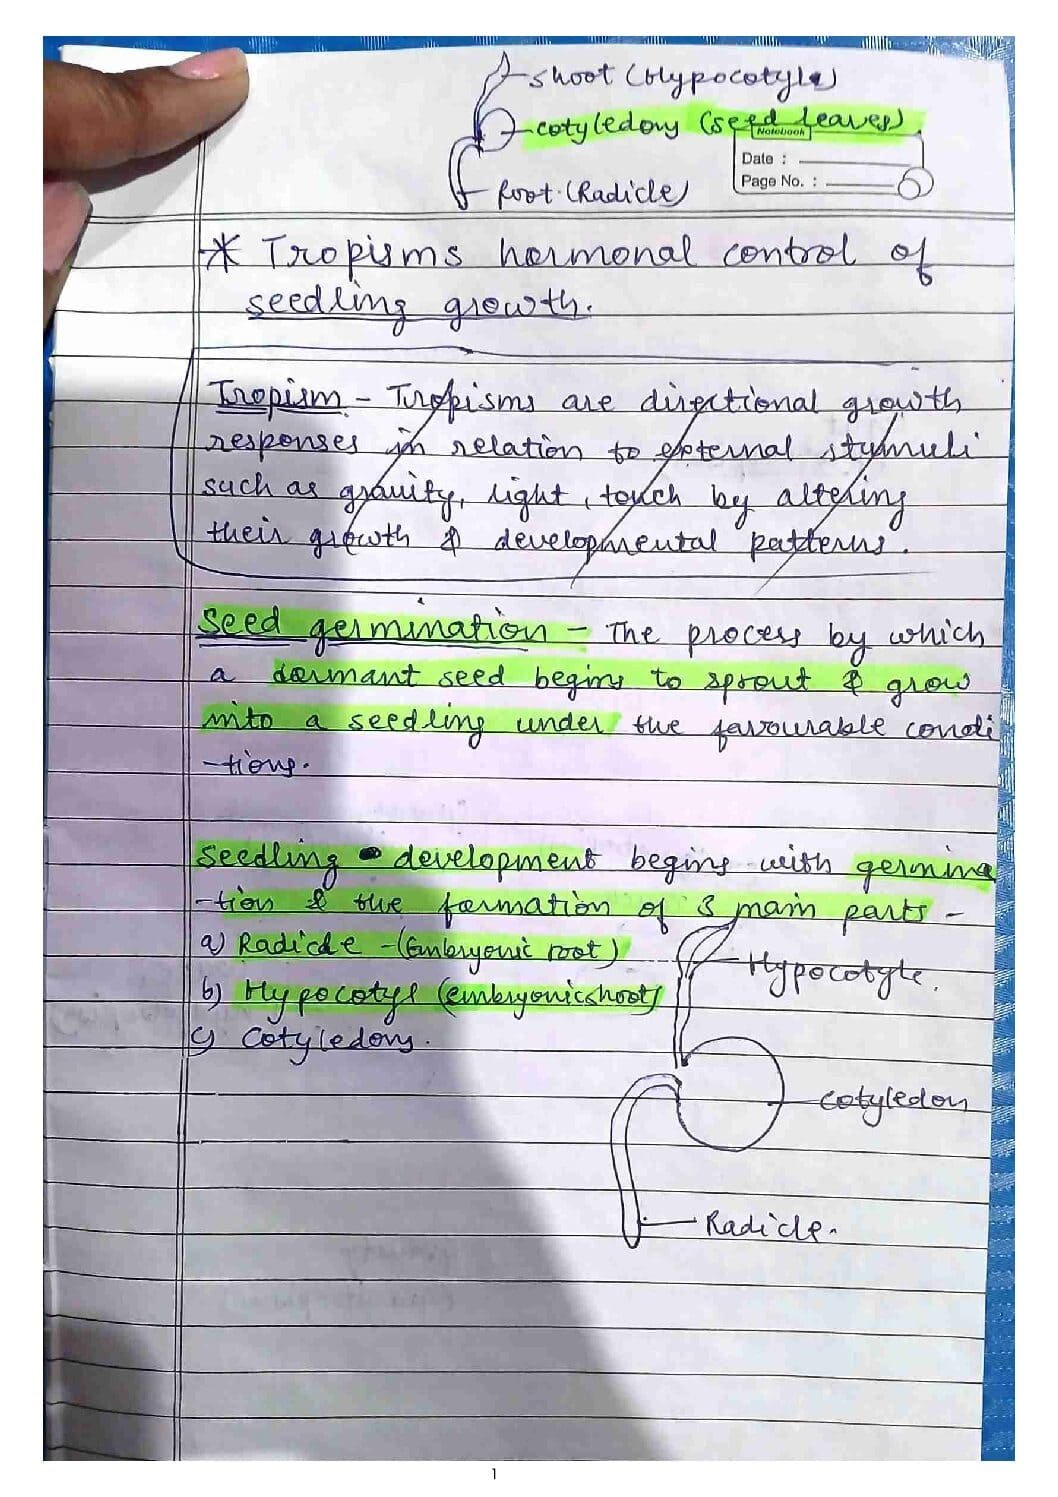 shoot (Hypocotyle)
cotyledony (seed leaves)
Notebook
Date :
Page No. :
Root (Radicle)
* Tropisms hormonal control of
seedling growth.
Tropism - Tropisms are directional growth
responses in relation to external stymuli
such as gravity, light, touch by altering
their growth & developmental patterns.
Seed germination - The process by which
a dormant seed begins to sprout & grow
into a seedling under the favourable condi
-tions.
Seedling development begins with germina
-tion & the formation of 3 main parts -
a) Radicle - (Embryonic root)
b) Hypocotyl (embryonicshoot)
Hypocotyle.
c) Cotyledons.
cotyledon
Radicle.
1